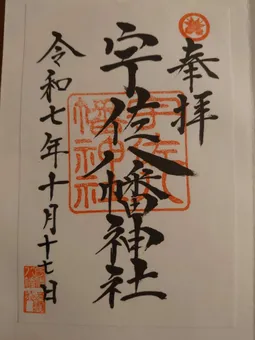 奉拝
宇佐八幡神社
宇佐八
幡神社
令和七年十月十七日